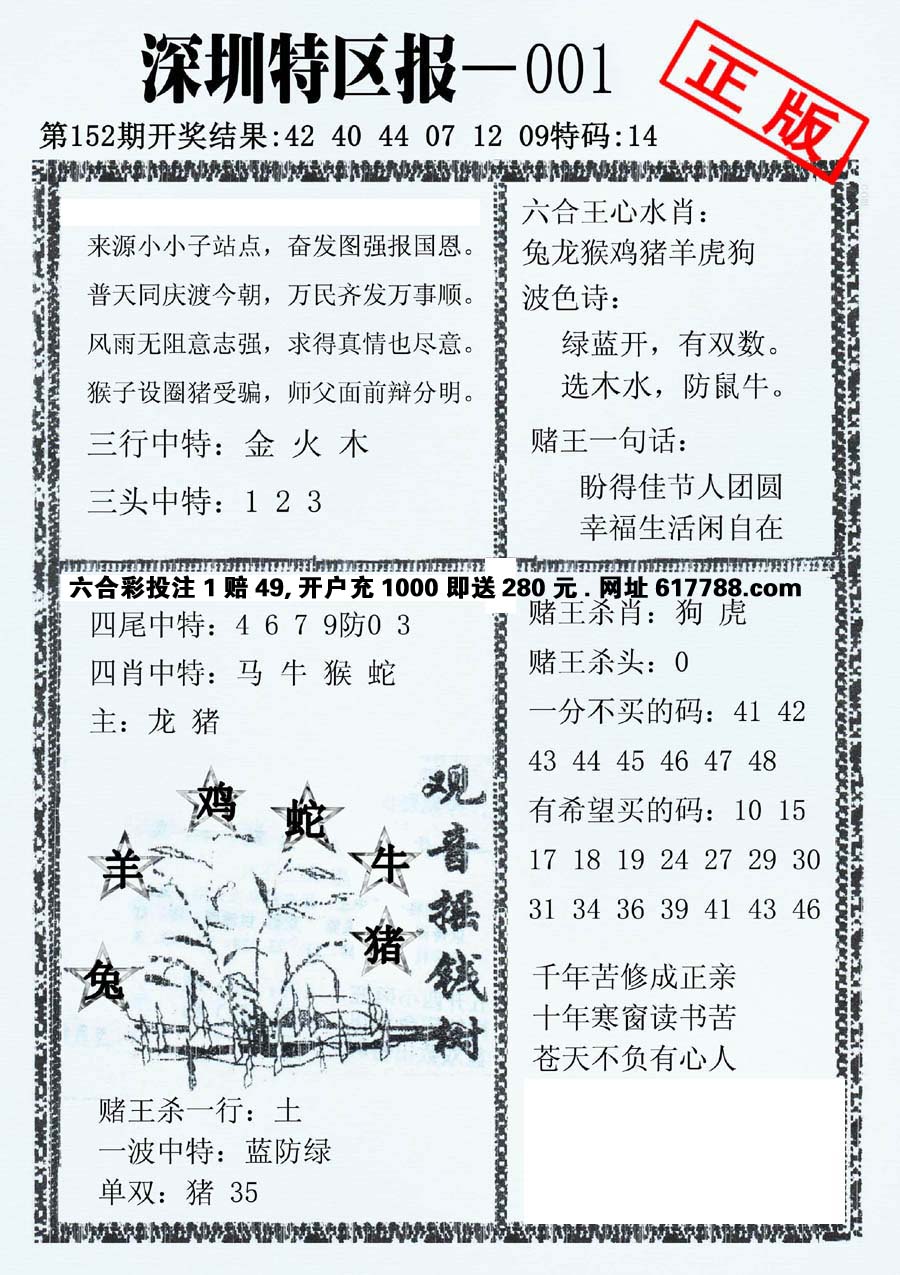 深圳特区报—001
正版
第152期开奖结果:42 40 44 07 12 09特码:14
来源小小子站点，奋发图强报国恩。
普天同庆渡今朝，万民齐发万事顺。
风雨无阻意志强，求得真情也尽意。
猴子设圈猪受骗，师父面前辩分明。
三行中特：金 火 木
三头中特：1 2 3
六合王心水肖：
兔龙猴鸡猪羊虎狗
波色诗：
绿蓝开，有双数。
选木水，防鼠牛。
赌王一句话：
盼得佳节人团圆
幸福生活闲自在
六合彩投注 1 赔 49, 开户充 1000 即送 280 元 . 网址 617788.com
四尾中特：4 6 7 9防0 3
四肖中特：马 牛 猴 蛇
主：龙 猪
观音摇钱树
鸡
蛇
羊
牛
猪
兔
赌王杀一行：土
一波中特：蓝防绿
单双：猪 35
赌王杀肖：狗 虎
赌王杀头：0
一分不买的码：41 42
43 44 45 46 47 48
有希望买的码：10 15
17 18 19 24 27 29 30
31 34 36 39 41 43 46
千年苦修成正亲
十年寒窗读书苦
苍天不负有心人